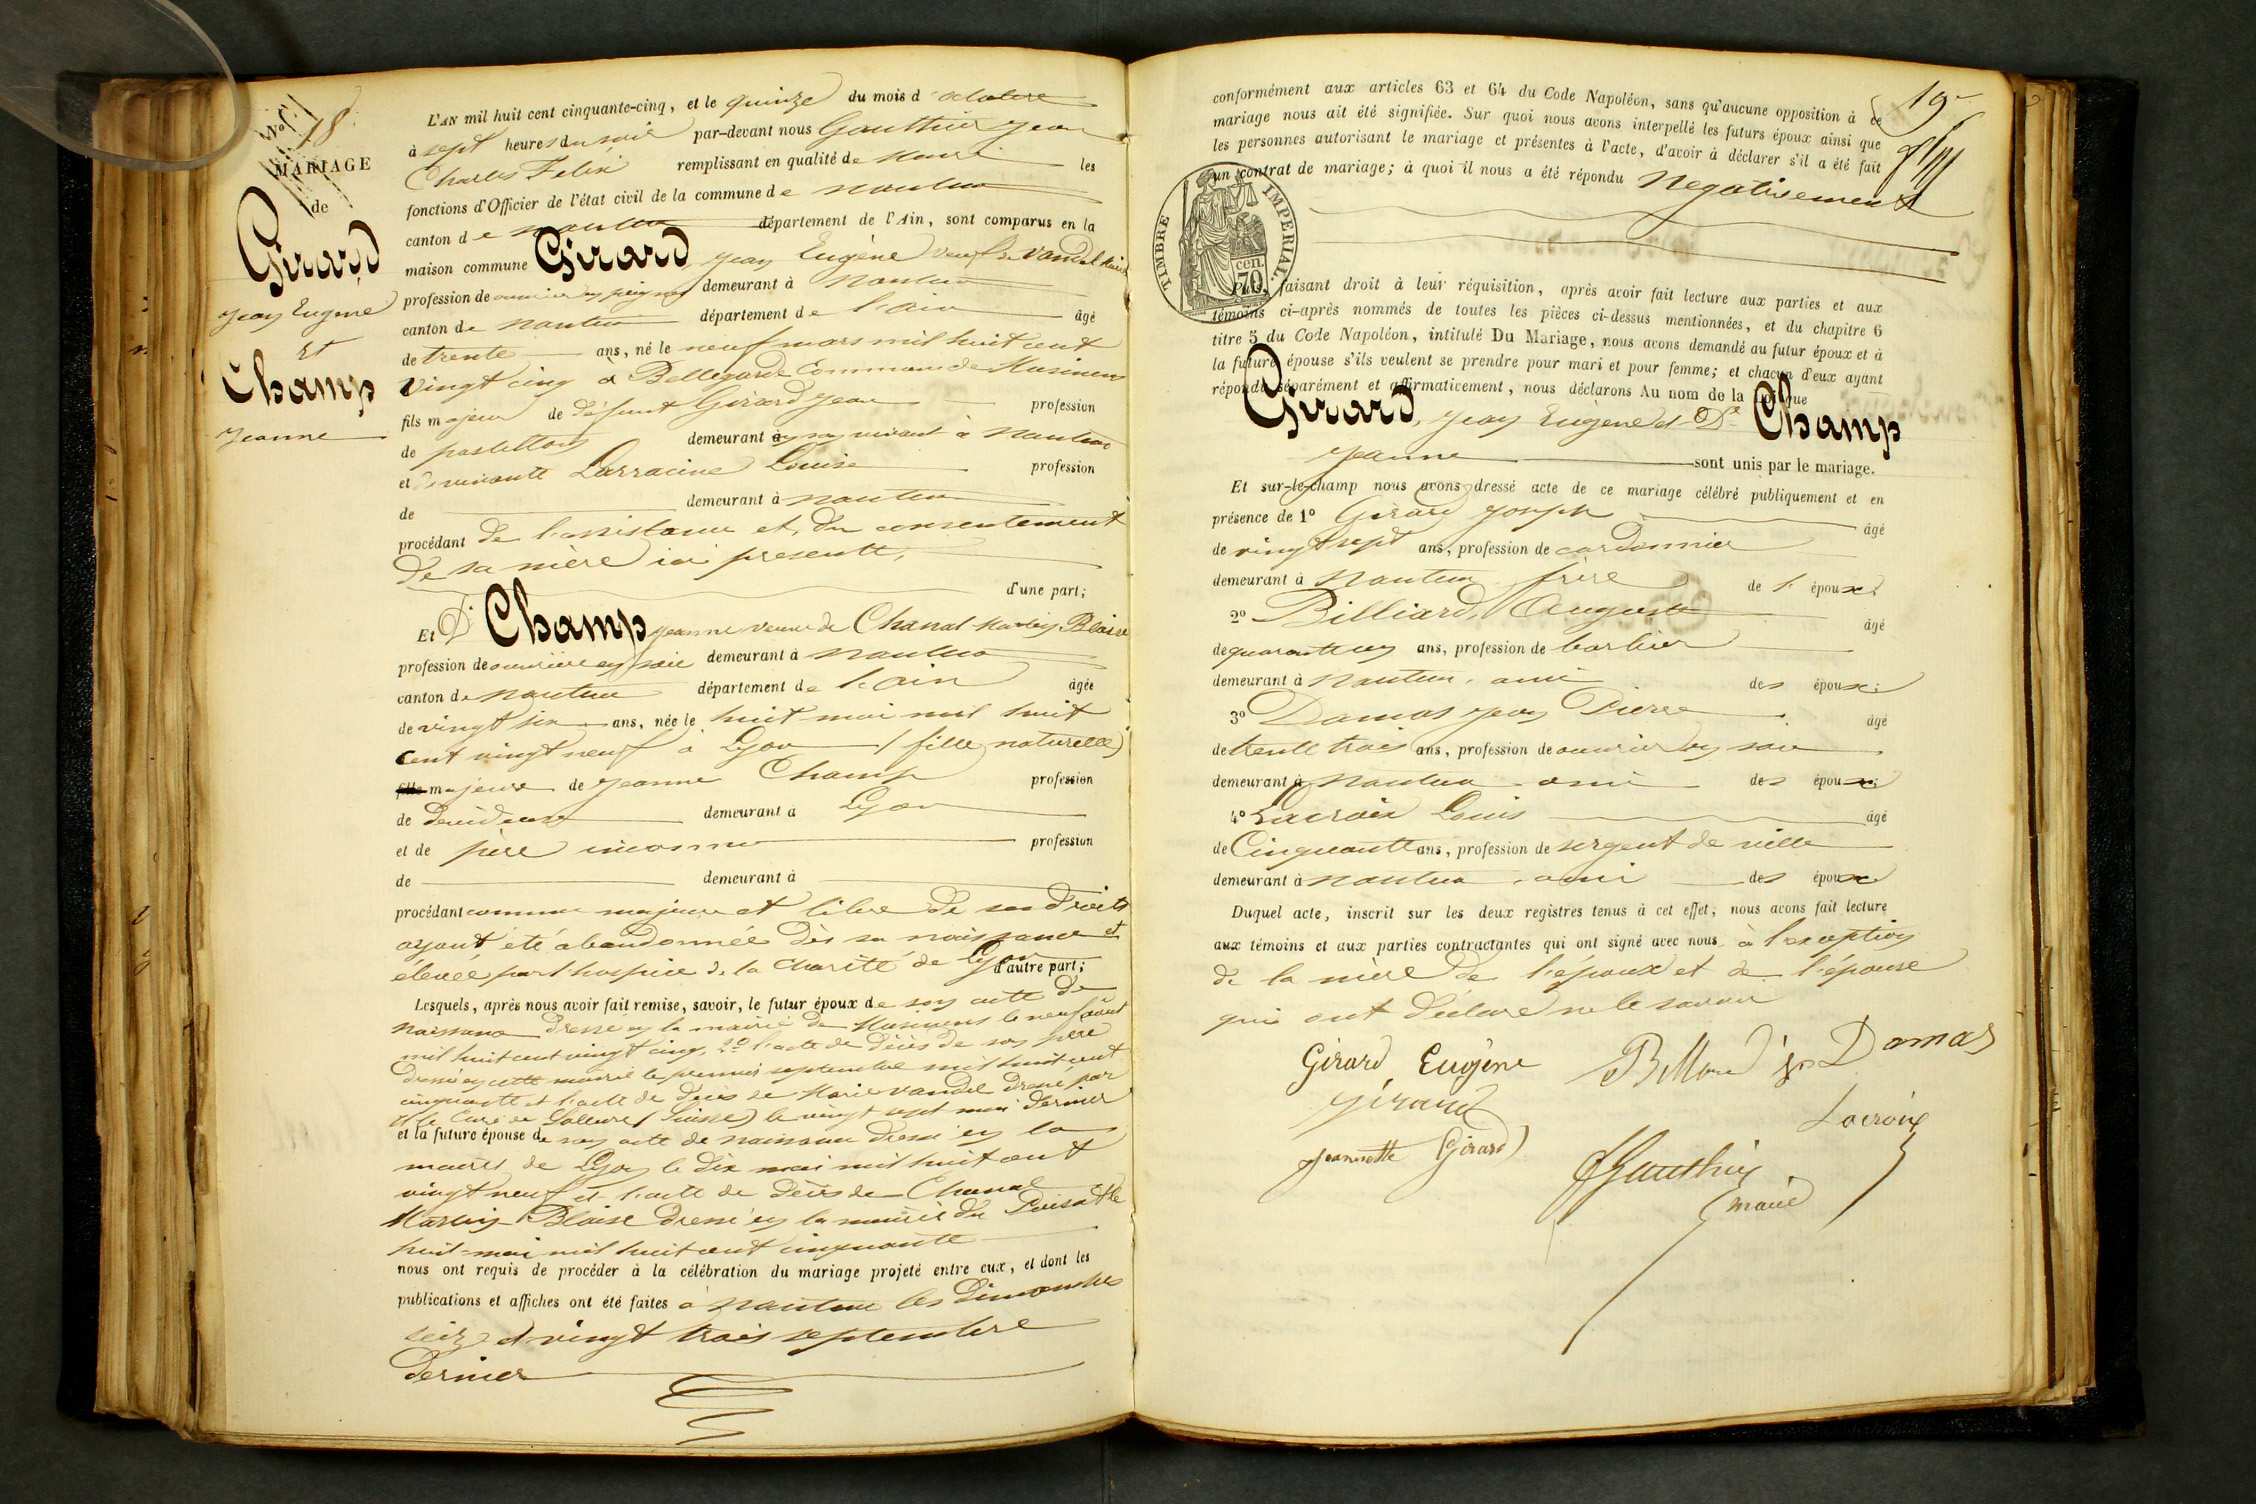 18
MARIAGE
de
Girard
Jean Eugène
et
Champ
Jeanne
L'AN mil huit cent cinquante-cinq, et le quinze du mois d'octobre
à sept heures du soir par-devant nous Gauthier Jean
Charles Félix remplissant en qualité de maire les
fonctions d'Officier de l'état civil de la commune de nantua
canton de nantua département de l'Ain, sont comparus en la
maison commune Girard Jean Eugène veuf de Vandel Marie
profession de ouvrier en peignes demeurant à Nantua
canton de nantua département de l'ain âgé
de trente ans, né le neuf mars mil huit cent
vingt cinq à Bellegarde Commune de Musinens
fils majeur de défunt Girard Jean profession
de postillon demeurant en son vivant à nantua
et de vivante Larracine Louise profession
de demeurant à nantua
procédant de l'assistance et du consentement
de sa mère ici présente,
d'une part;
Et De Champ Jeanne veuve de Chanal Martin Blaise
profession de ouvrière en soie demeurant à nantua
canton de nantua département de l'ain âgée
de vingt six ans, née le huit mai mil huit
cent vingt neuf à Lyon (fille naturelle)
fille majeure de Jeanne Champ profession
de dévideuse demeurant à Lyon
et de père inconnu profession
de demeurant à
procédant comme majeure et libre de ses droits
ayant été abandonnée dès sa naissance et
élevée par l'hospice de la Charité de Lyon d'autre part;
Lesquels, après nous avoir fait remise, savoir, le futur époux de son acte de
naissance dressé en la mairie de Musinens le neuf août
mil huit cent vingt cinq, 2º l'acte de décès de son père
dressé en cette mairie le premier septembre mil huit cent
cinquante et l'acte de décès de Marie Vandel dressé par
Mr le Curé de Soleure (Suisse) le vingt sept mai dernier
et la future épouse de son acte de naissance dressé en la
mairie de Lyon le dix mai mil huit cent
vingt neuf et l'acte de décès de Chanal
Martin Blaise dressé en la mairie du le
huit mai mil huit cent cinquante
nous ont requis de procéder à la célébration du mariage projeté entre eux, et dont les
publications et affiches ont été faites à nantua les dimanches
seize et vingt trois septembre
dernier
19
conformément aux articles 63 et 64 du Code Napoléon, sans qu'aucune opposition à ce
mariage nous ait été signifiée. Sur quoi nous avons interpellé les futurs époux ainsi que
les personnes autorisant le mariage et présentes à l'acte, d'avoir à déclarer s'il a été fait
un contrat de mariage; à quoi il nous a été répondu négativement
TIMBRE IMPÉRIAL
70 cen.
Puis, faisant droit à leur réquisition, après avoir fait lecture aux parties et aux
témoins ci-après nommés de toutes les pièces ci-dessus mentionnées, et du chapitre 6
titre 5 du Code Napoléon, intitulé Du Mariage, nous avons demandé au futur époux et à
la future épouse s'ils veulent se prendre pour mari et pour femme; et chacun d'eux ayant
répondu séparément et affirmativement, nous déclarons Au nom de la Loi que
Girard, Jean Eugène et De Champ
Jeanne sont unis par le mariage.
Et sur-le-champ nous avons dressé acte de ce mariage célébré publiquement et en
présence de 1º Girard Joseph âgé
de vingt sept ans, profession de cordonnier
demeurant à nantua frère de l'époux
2º Billiard, Auguste âgé
de quarante un ans, profession de barbier
demeurant à nantua, ami des époux;
3º Damas Jean Pierre âgé
de trente trois ans, profession de ouvrier en soie
demeurant à nantua ami des époux;
4º Lacroix Louis âgé
de Cinquante ans, profession de sergent de ville
demeurant à nantua, ami des époux
Duquel acte, inscrit sur les deux registres tenus à cet effet, nous avons fait lecture
aux témoins et aux parties contractantes qui ont signé avec nous à l'exception
de la mère de l'époux et de l'épouse
qui ont déclaré ne le savoir
Girard Eugène
Damas
girard
Lacroix
Jeannette Girard
Gauthier
maire